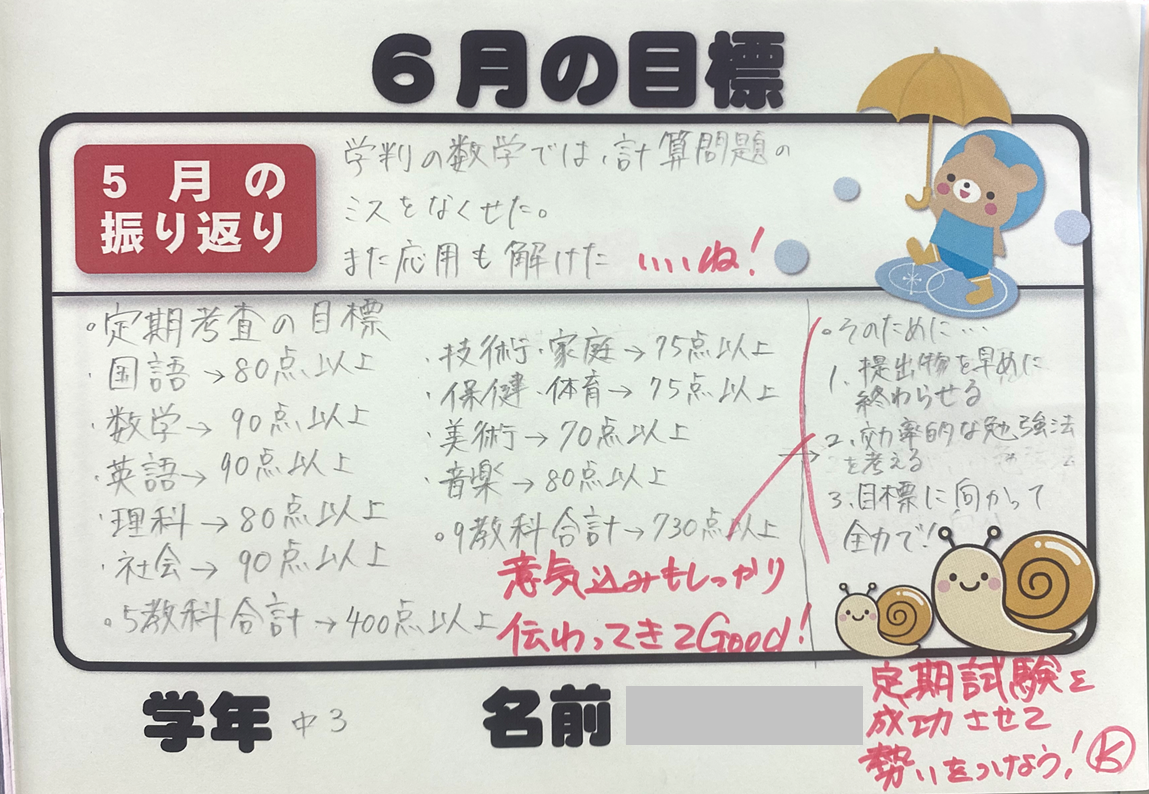 6月の目標
5月の
振り返り
学判の数学では、計算問題の
ミスをなくせた。
また応用も解けた
いいね!
。定期考査の目標
・国語→80点以上
・数学→90点以上
・英語→90点以上
・理科→80点以上
・社会→90点以上
。5教科合計→400点以上
・技術・家庭→75点以上
・保健・体育→75点以上
・美術→70点以上
・音楽→80点以上
。9教科合計→730点以上
意気込みもしっかり
伝わってきてGood!
。そのために…
1.提出物を早めに
終わらせる
2.効率的な勉強法
を考える
3.目標に向かって
全力で!
学年 中3
名前
定期試験を
成功させて
勢いをつけよう! K